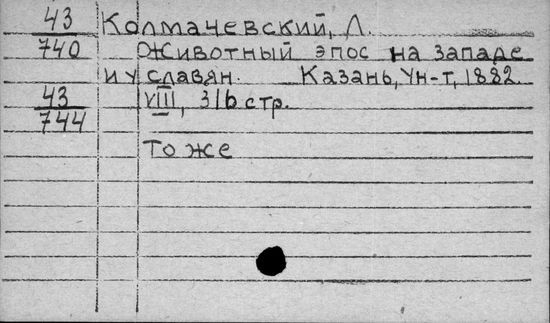 43 Колмачевский, Л.
740 Животный эпос на западе
и у славян. Казань, Ун-т, 1882.
43 VIII, 316 стр.
744
То же